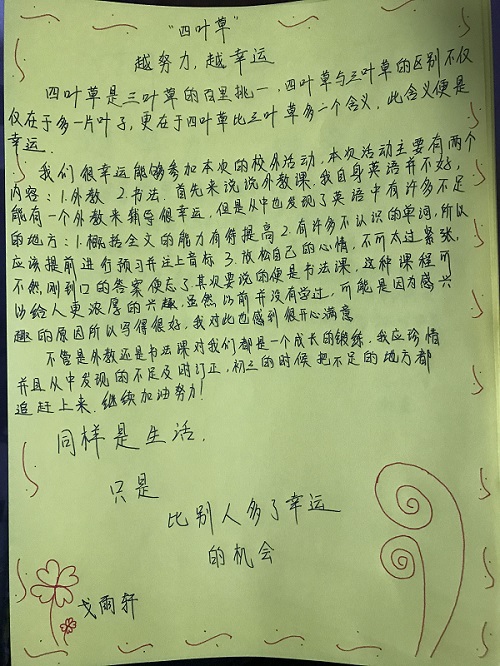 “四叶草”
越努力，越幸运
四叶草是三叶草的百里挑一，四叶草与三叶草的区别不仅
仅在于多一片叶子，更在于四叶草比三叶草多一个含义，此含义便是
幸运．
我们很幸运能够参加本次的校外活动，本次活动主要有两个
内容：1.外教 2.书法．首先来说说外教课．我自身英语并不好，
能有一个外教来辅导很幸运，但是从中也发现了英语中有许多不足
的地方：1.概括全文的能力有待提高 2.有许多不认识的单词，所以
应该提前进行预习并注上音标 3.放松自己的心情，不可太过紧张，
不然，刚到口的答案便忘了．其次要说的便是书法课，这种课程可
以给人更浓厚的兴趣．虽然以前并没有学过，可能是因为感兴
趣的原因所以写得很好，我对此也感到很开心满意
不管是外教还是书法课对我们都是一个成长的锻练．我应珍惜
并且从中发现的不足及时订正，初二的时候把不足的地方都
追赶上来．继续加油努力！
同样是生活．
只是
比别人多了幸运
的机会
戈雨轩